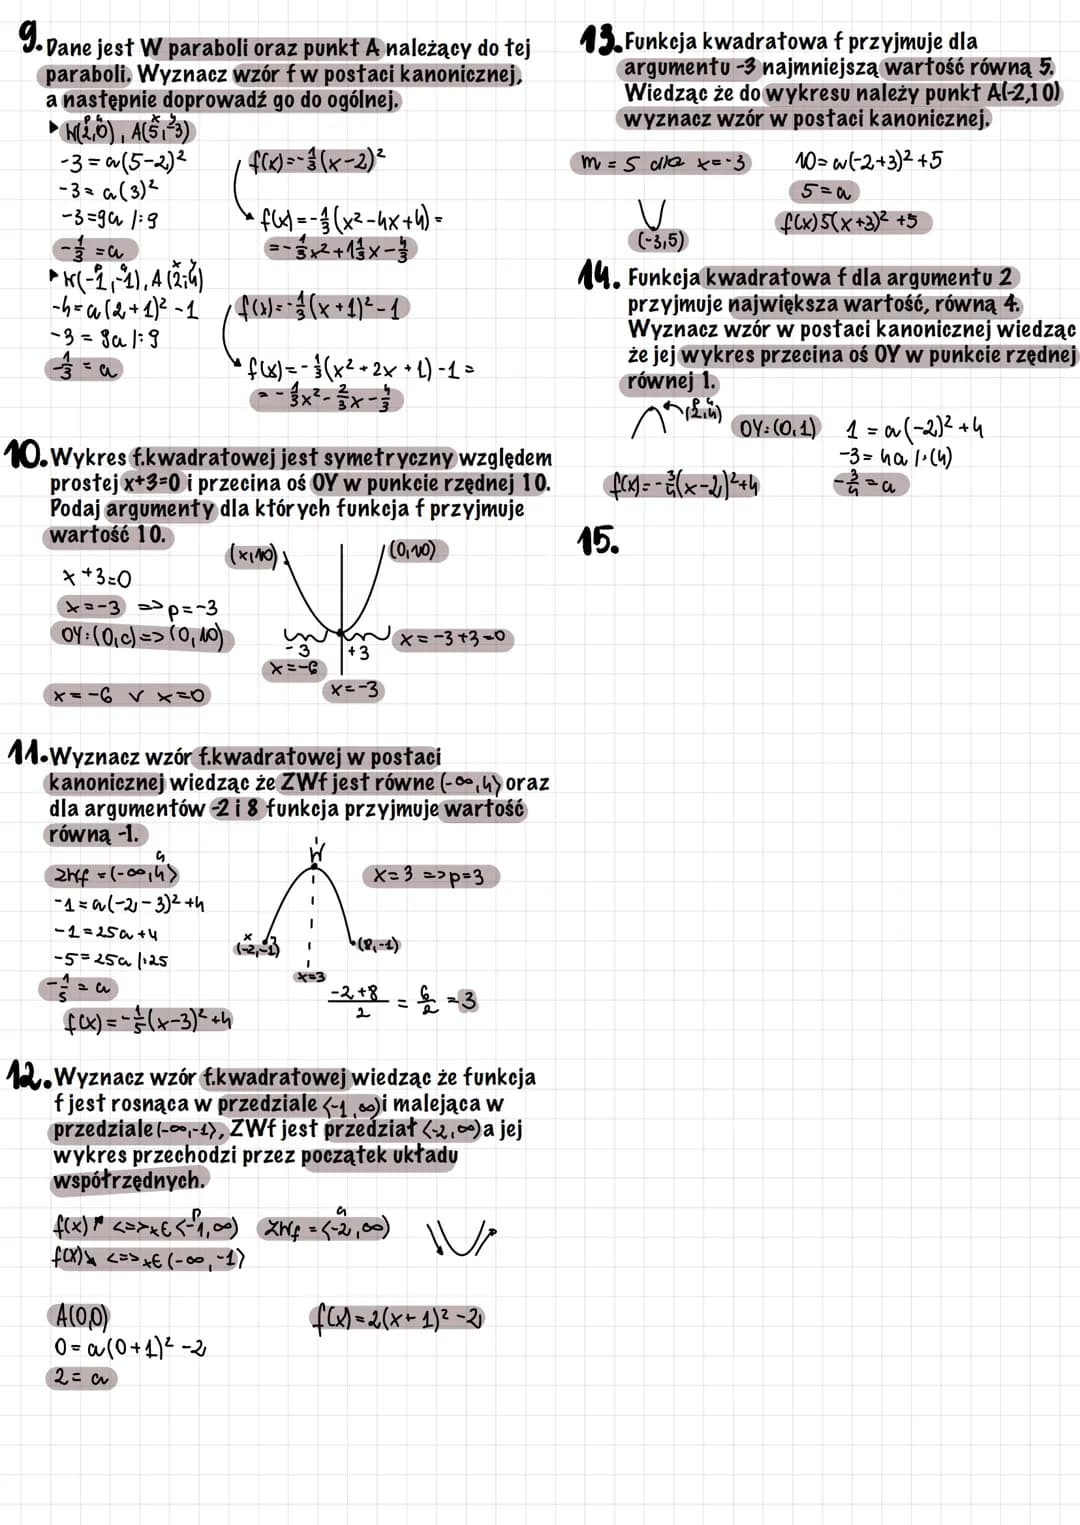 9. Dane jest W paraboli oraz punkt A należący do tej
paraboli. Wyznacz wzór f w postaci kanonicznej,
a następnie doprowadź go do ogólnej.
▸ W(2,0), A(5,-3)
p q x y
-3 = a(5-2)²
-3 = a(3)²
-3=9a /:9
-1/3 = a
f(x)=-1/3(x-2)²
f(x)=-1/3(x²-4x+4)=
=-1/3x²+1 1/3x-4/3
▸ W(-1,-1), A(2,-4)
p q x y
-4=a(2+1)²-1
-3 = 9a /:9
-1/3 = a
f(x)=-1/3(x+1)²-1
f(x)=-1/3(x²+2x+1)-1=
=-1/3x²-2/3x-4/3
10. Wykres f.kwadratowej jest symetryczny względem
prostej x+3=0 i przecina oś OY w punkcie rzędnej 10.
Podaj argumenty dla których funkcja f przyjmuje
wartość 10.
x+3=0
x=-3 => p=-3
OY:(0,c)=>(0,10)
x=-6 ∨ x=0
(x,10)
(0,10)
-3
+3
x=-3+3=0
x=-6
x=-3
11. Wyznacz wzór f.kwadratowej w postaci
kanonicznej wiedząc że ZWf jest równe (-∞,4⟩ oraz
dla argumentów -2 i 8 funkcja przyjmuje wartość
równą -1.
q
ZWf =(-∞,4⟩
-1=a(-2-3)²+4
-1=25a+4
-5=25a /:25
-1/5 = a
f(x)=-1/5(x-3)²+4
W
x=3 =>p=3
x y
(-2,-1)
(8,-1)
x=3
-2+8/2 = 6/2 =3
12. Wyznacz wzór f.kwadratowej wiedząc że funkcja
f jest rosnąca w przedziale ⟨-1,∞) i malejąca w
przedziale (-∞,-1⟩, ZWf jest przedział ⟨-2,∞) a jej
wykres przechodzi przez początek układu
współrzędnych.
p q
f(x)↗ <=>x∈⟨-1,∞) ZWf =⟨-2,∞)
f(x)↘ <=>x∈(-∞,-1⟩
A(0,0)
0=a(0+1)²-2
2=a
f(x)=2(x+1)²-2
13. Funkcja kwadratowa f przyjmuje dla
argumentu -3 najmniejszą wartość równą 5.
Wiedząc że do wykresu należy punkt A(-2,10)
wyznacz wzór w postaci kanonicznej.
m = 5 dla x=-3
(-3,5)
10=a(-2+3)²+5
5=a
f(x)5(x+3)²+5
14. Funkcja kwadratowa f dla argumentu 2
przyjmuje największa wartość, równą 4.
Wyznacz wzór w postaci kanonicznej wiedząc
że jej wykres przecina oś OY w punkcie rzędnej
równej 1.
p q
(2,4)
OY:(0,1)
1=a(-2)²+4
-3=4a /:(4)
-3/4=a
f(x)=-3/4(x-2)²+4
15.